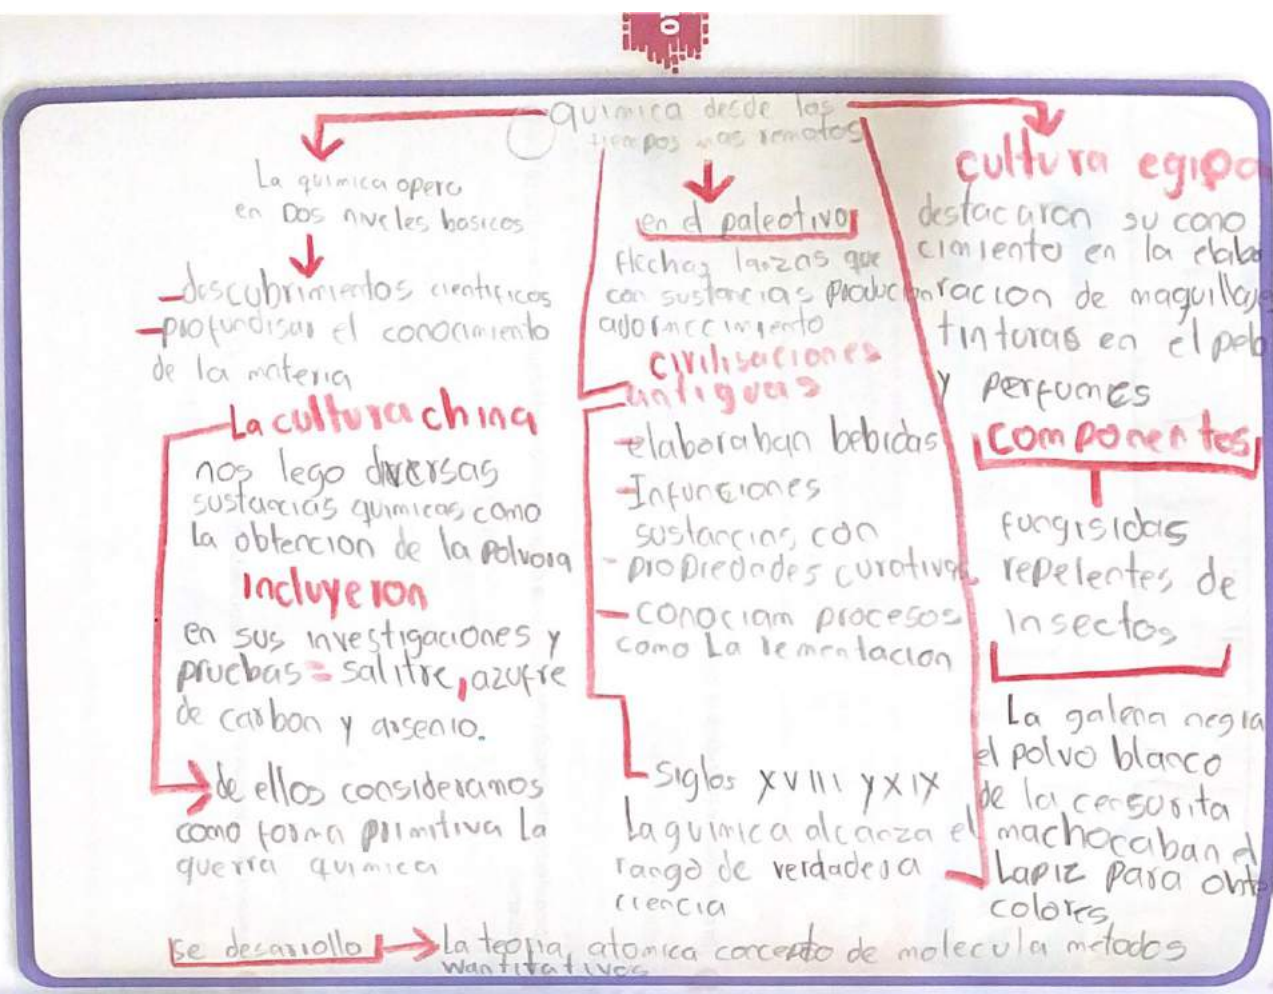 10
quimica desde los
tiempos mas remotos
La quimica opero
en Dos niveles basicos
-descubrimientos cientificos
-profundisar el conocimiento
de la materia
La cultura china
nos lego diversas
sustancias quimicas como
La obtencion de la polvora
Incluyeron
en sus investigaciones y
pruebas = salitre, azufre
de carbon y arsenio.
de ellos consideramos
como forma primitiva La
guerra quimica
en el paleotivo
flechas lanzas que
con sustancias producian
adormecimiento
civilisaciones
antiguas
-elaboraban bebidas
-Infunciones
sustancias con
- propiedades curativas
- conociam procesos
como La
siglos XVIII y XIX
La quimica alcanza el
rango de verdadera
ciencia
cultura egipcia
destacaron su cono
cimiento en la elabo
racion de maquillaje
tinturas en el pelo
y perfumes
componentes
fungisidas
repelentes de
insectos
La galena negra
el polvo blanco
de la
machacaban el
Lapiz para
colores,
se desarrollo
La teoria, atomica concepto de molecula metodos